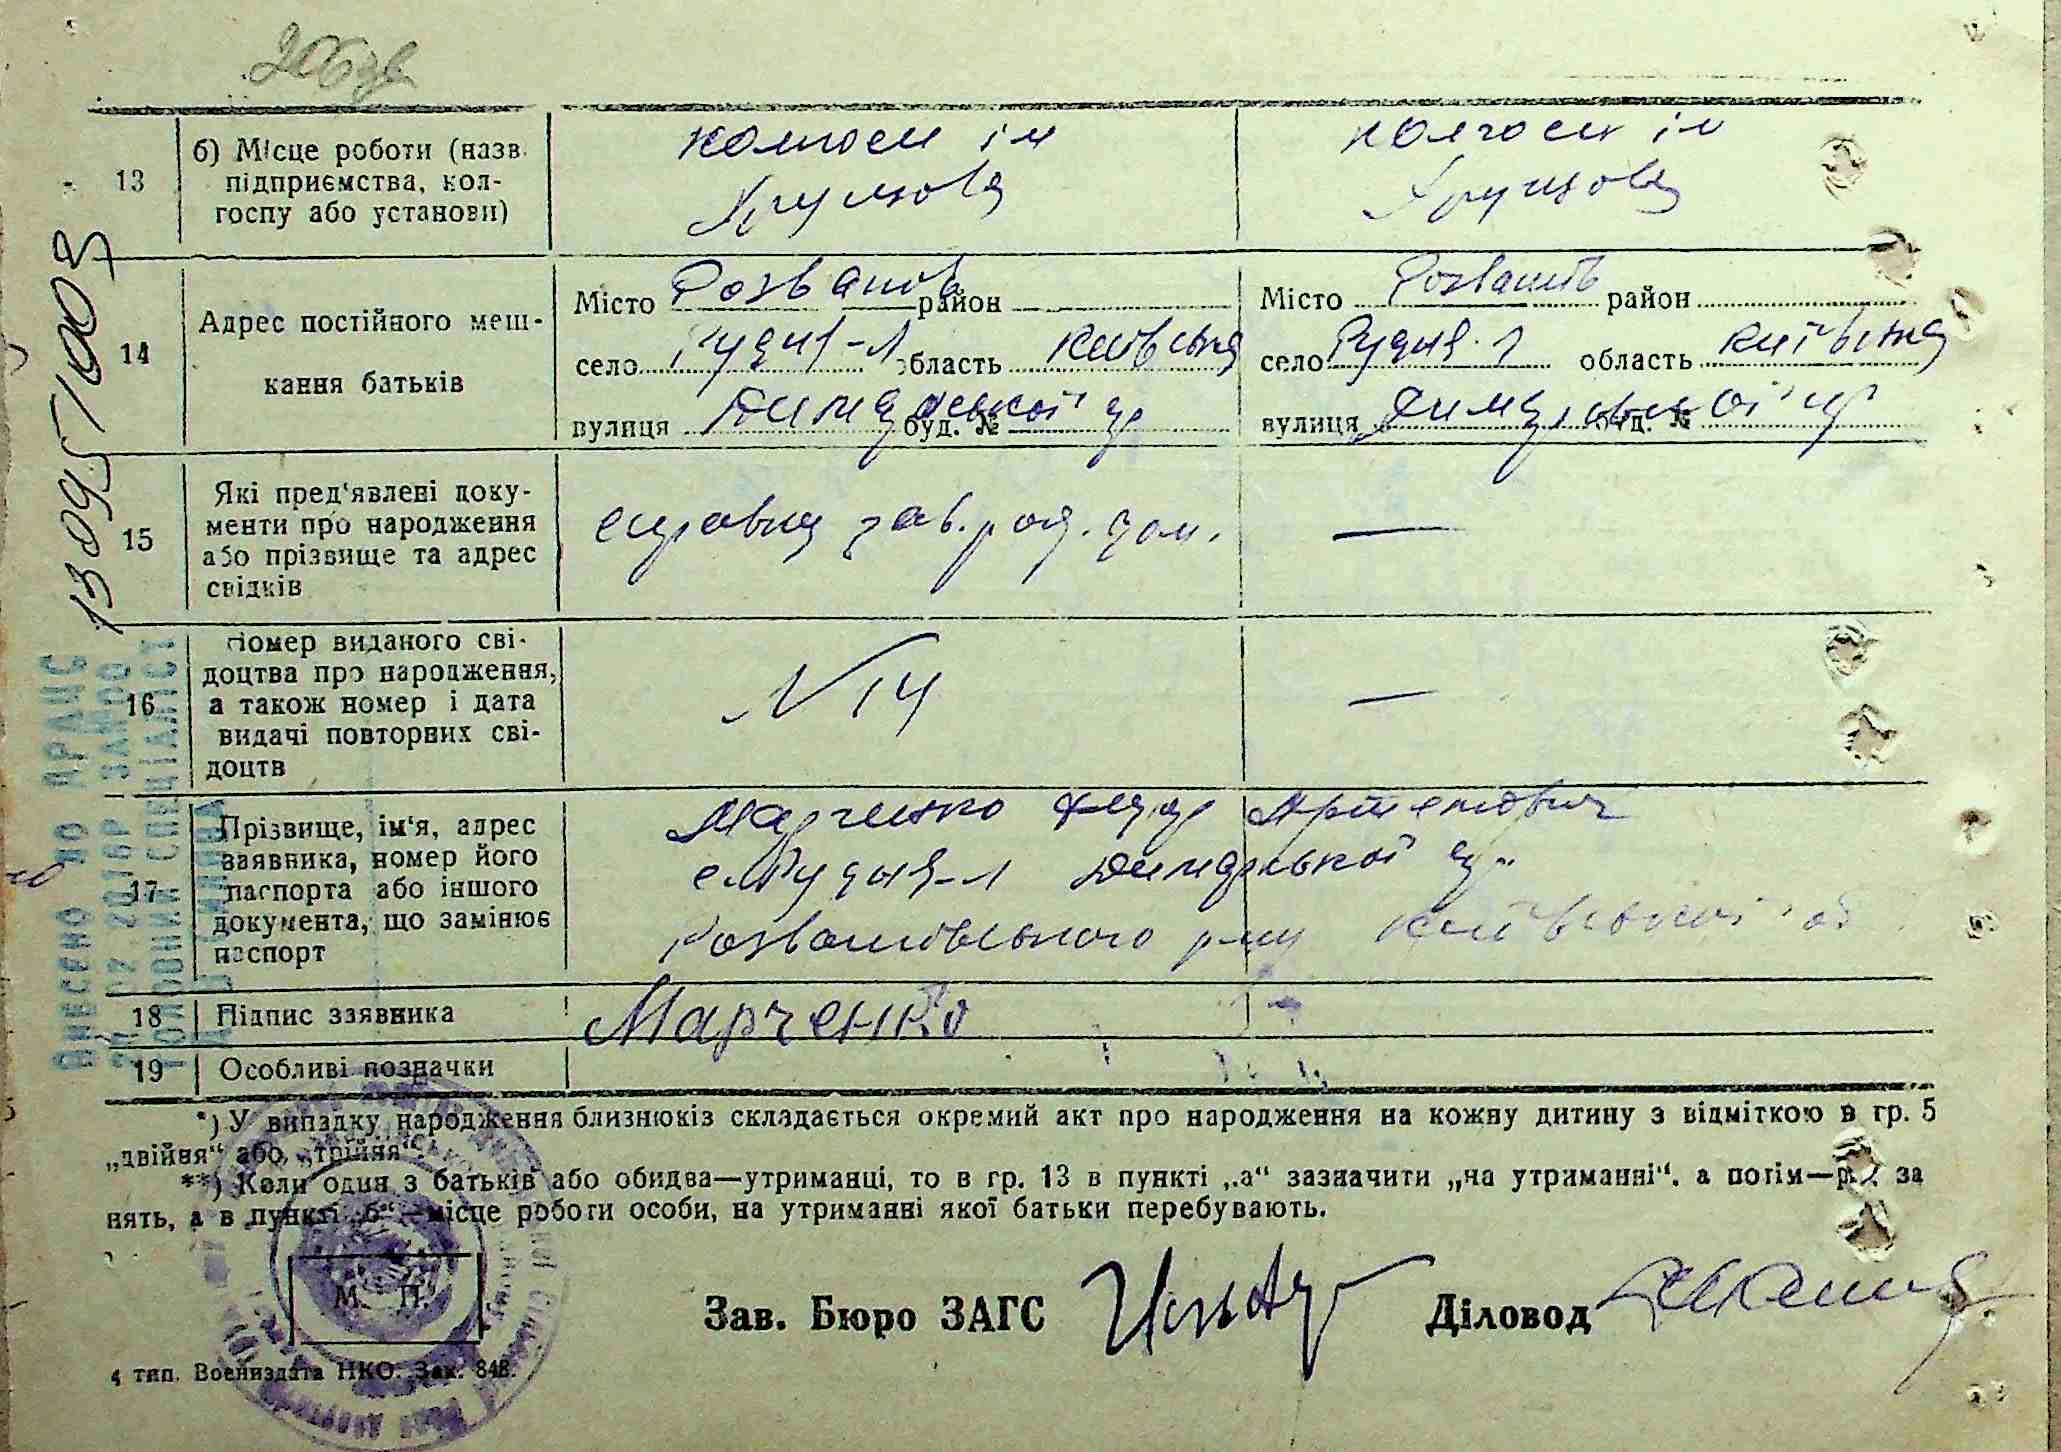 206зв
13 б) Місце роботи (назв. підприємства, кол-госпу або установи) колгосп ім Хрущова колгосп ім Хрущова
14 Адрес постійного меш-кання батьків
Місто Розважів район
село Рудня-Л область Київська
вулиця Димерської буд. №
Місто Розважів район
село Рудня-Л область Київська
вулиця Димерської буд. №
15 Які пред'явлені доку-менти про народження або прізвище та адрес свідків справка зав. род. дом. —
16 Номер виданого сві-доцтва про народження, а також номер і дата видачі повторних сві-доцтв N 14 —
17 Прізвище, ім'я, адрес заявника, номер його паспорта або іншого документа, що замінює паспорт
Марченко Федор Артемович
с. Рудня-Л Димерської
Розважівського р-ну Київської об
18 Підпис заявника Марченко
19 Особливі позначки
*) У випадку народження близнюкіз складається окремий акт про народження на кожну дитину з відміткою в гр. 5
„двійня“ або „трійня“.
**) Коли один з батьків або обидва—утриманці, то в гр. 13 в пункті „а“ зазначити „на утриманні“, а потім— за
нять, а в пункті „б“—місце роботи особи, на утриманні якої батьки перебувають.
М. П.
Зав. Бюро ЗАГС
Діловод
4 тип. Воениздата НКО. Зак. 848.
13095/1003
ВНЕСЕНО ДО ДРАЦС
ГОЛОВНИЙ СПЕЦІАЛІСТ